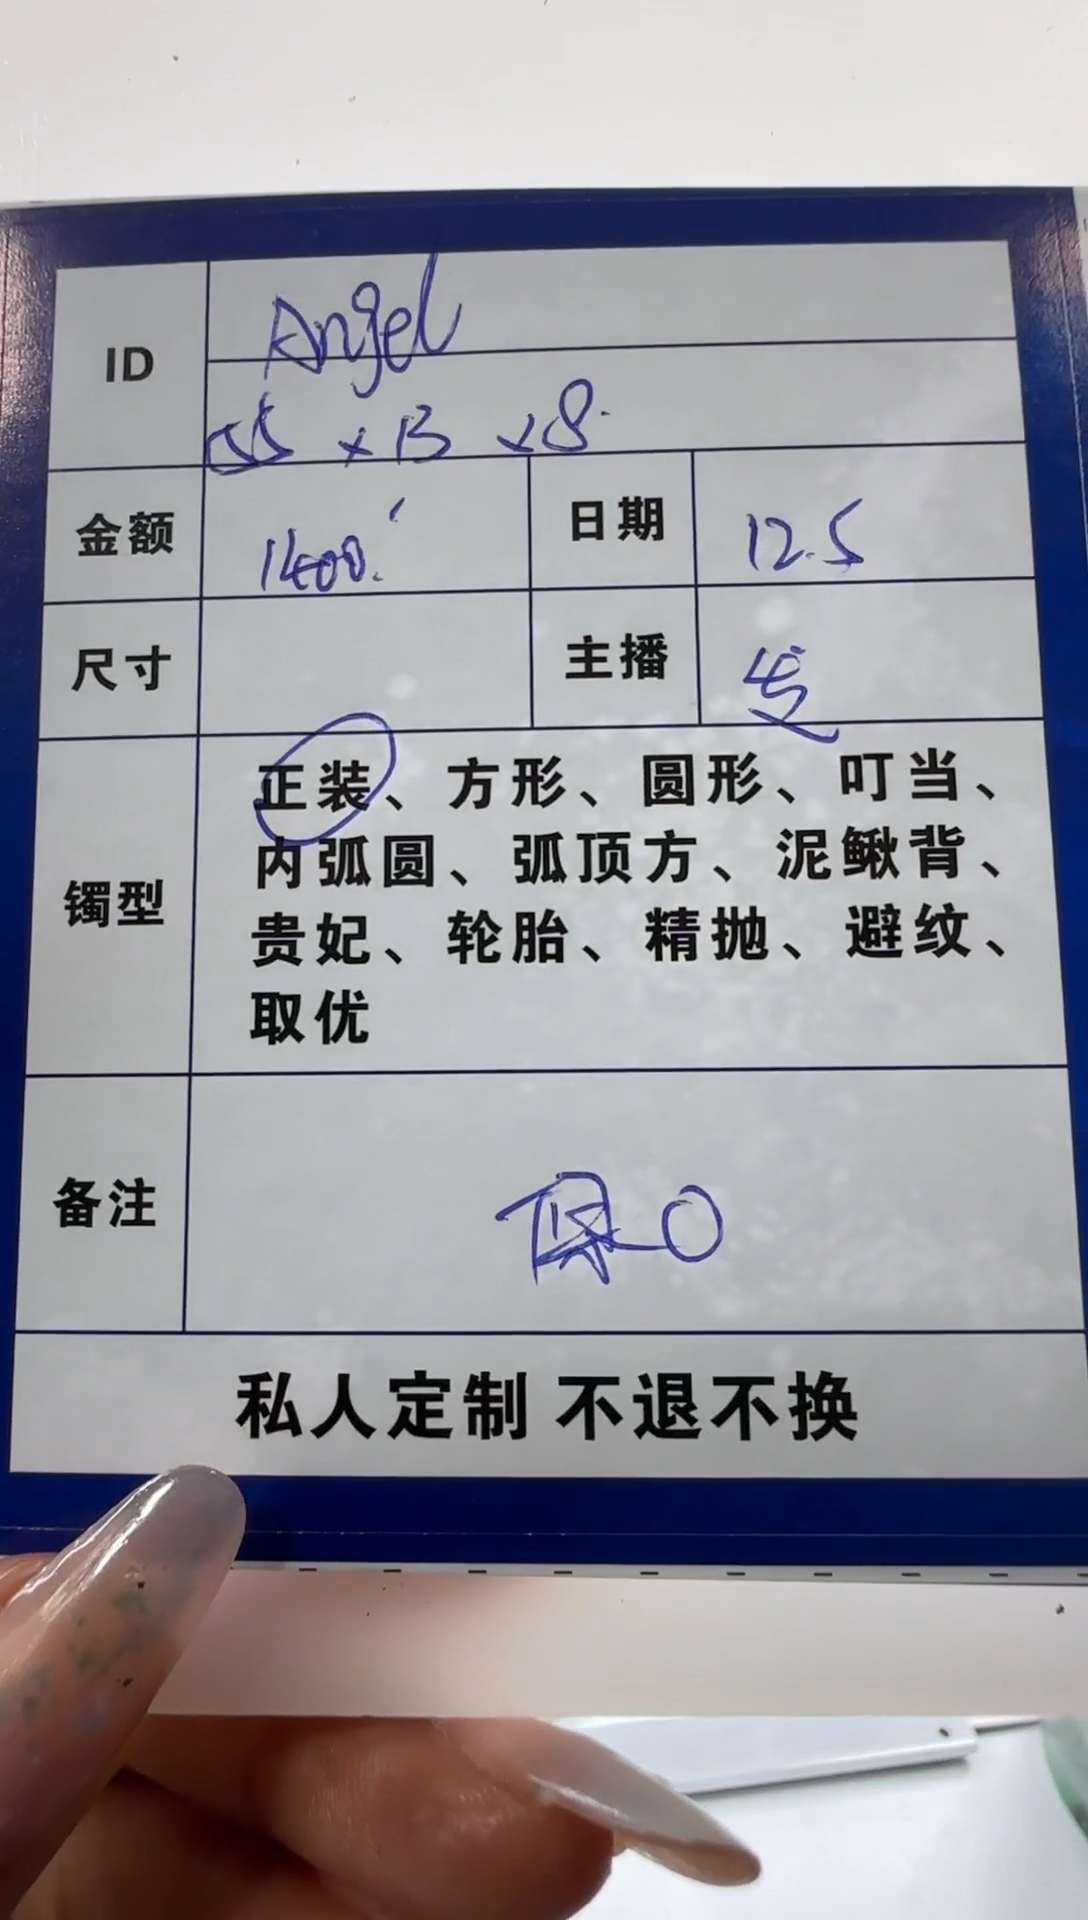 ID
Angel
55 × 13 × 8
金额
1400
日期
12.5
尺寸
主播
镯型
正装、方形、圆形、叮当、
内弧圆、弧顶方、泥鳅背、
贵妃、轮胎、精抛、避纹、
取优
备注
私人定制 不退不换